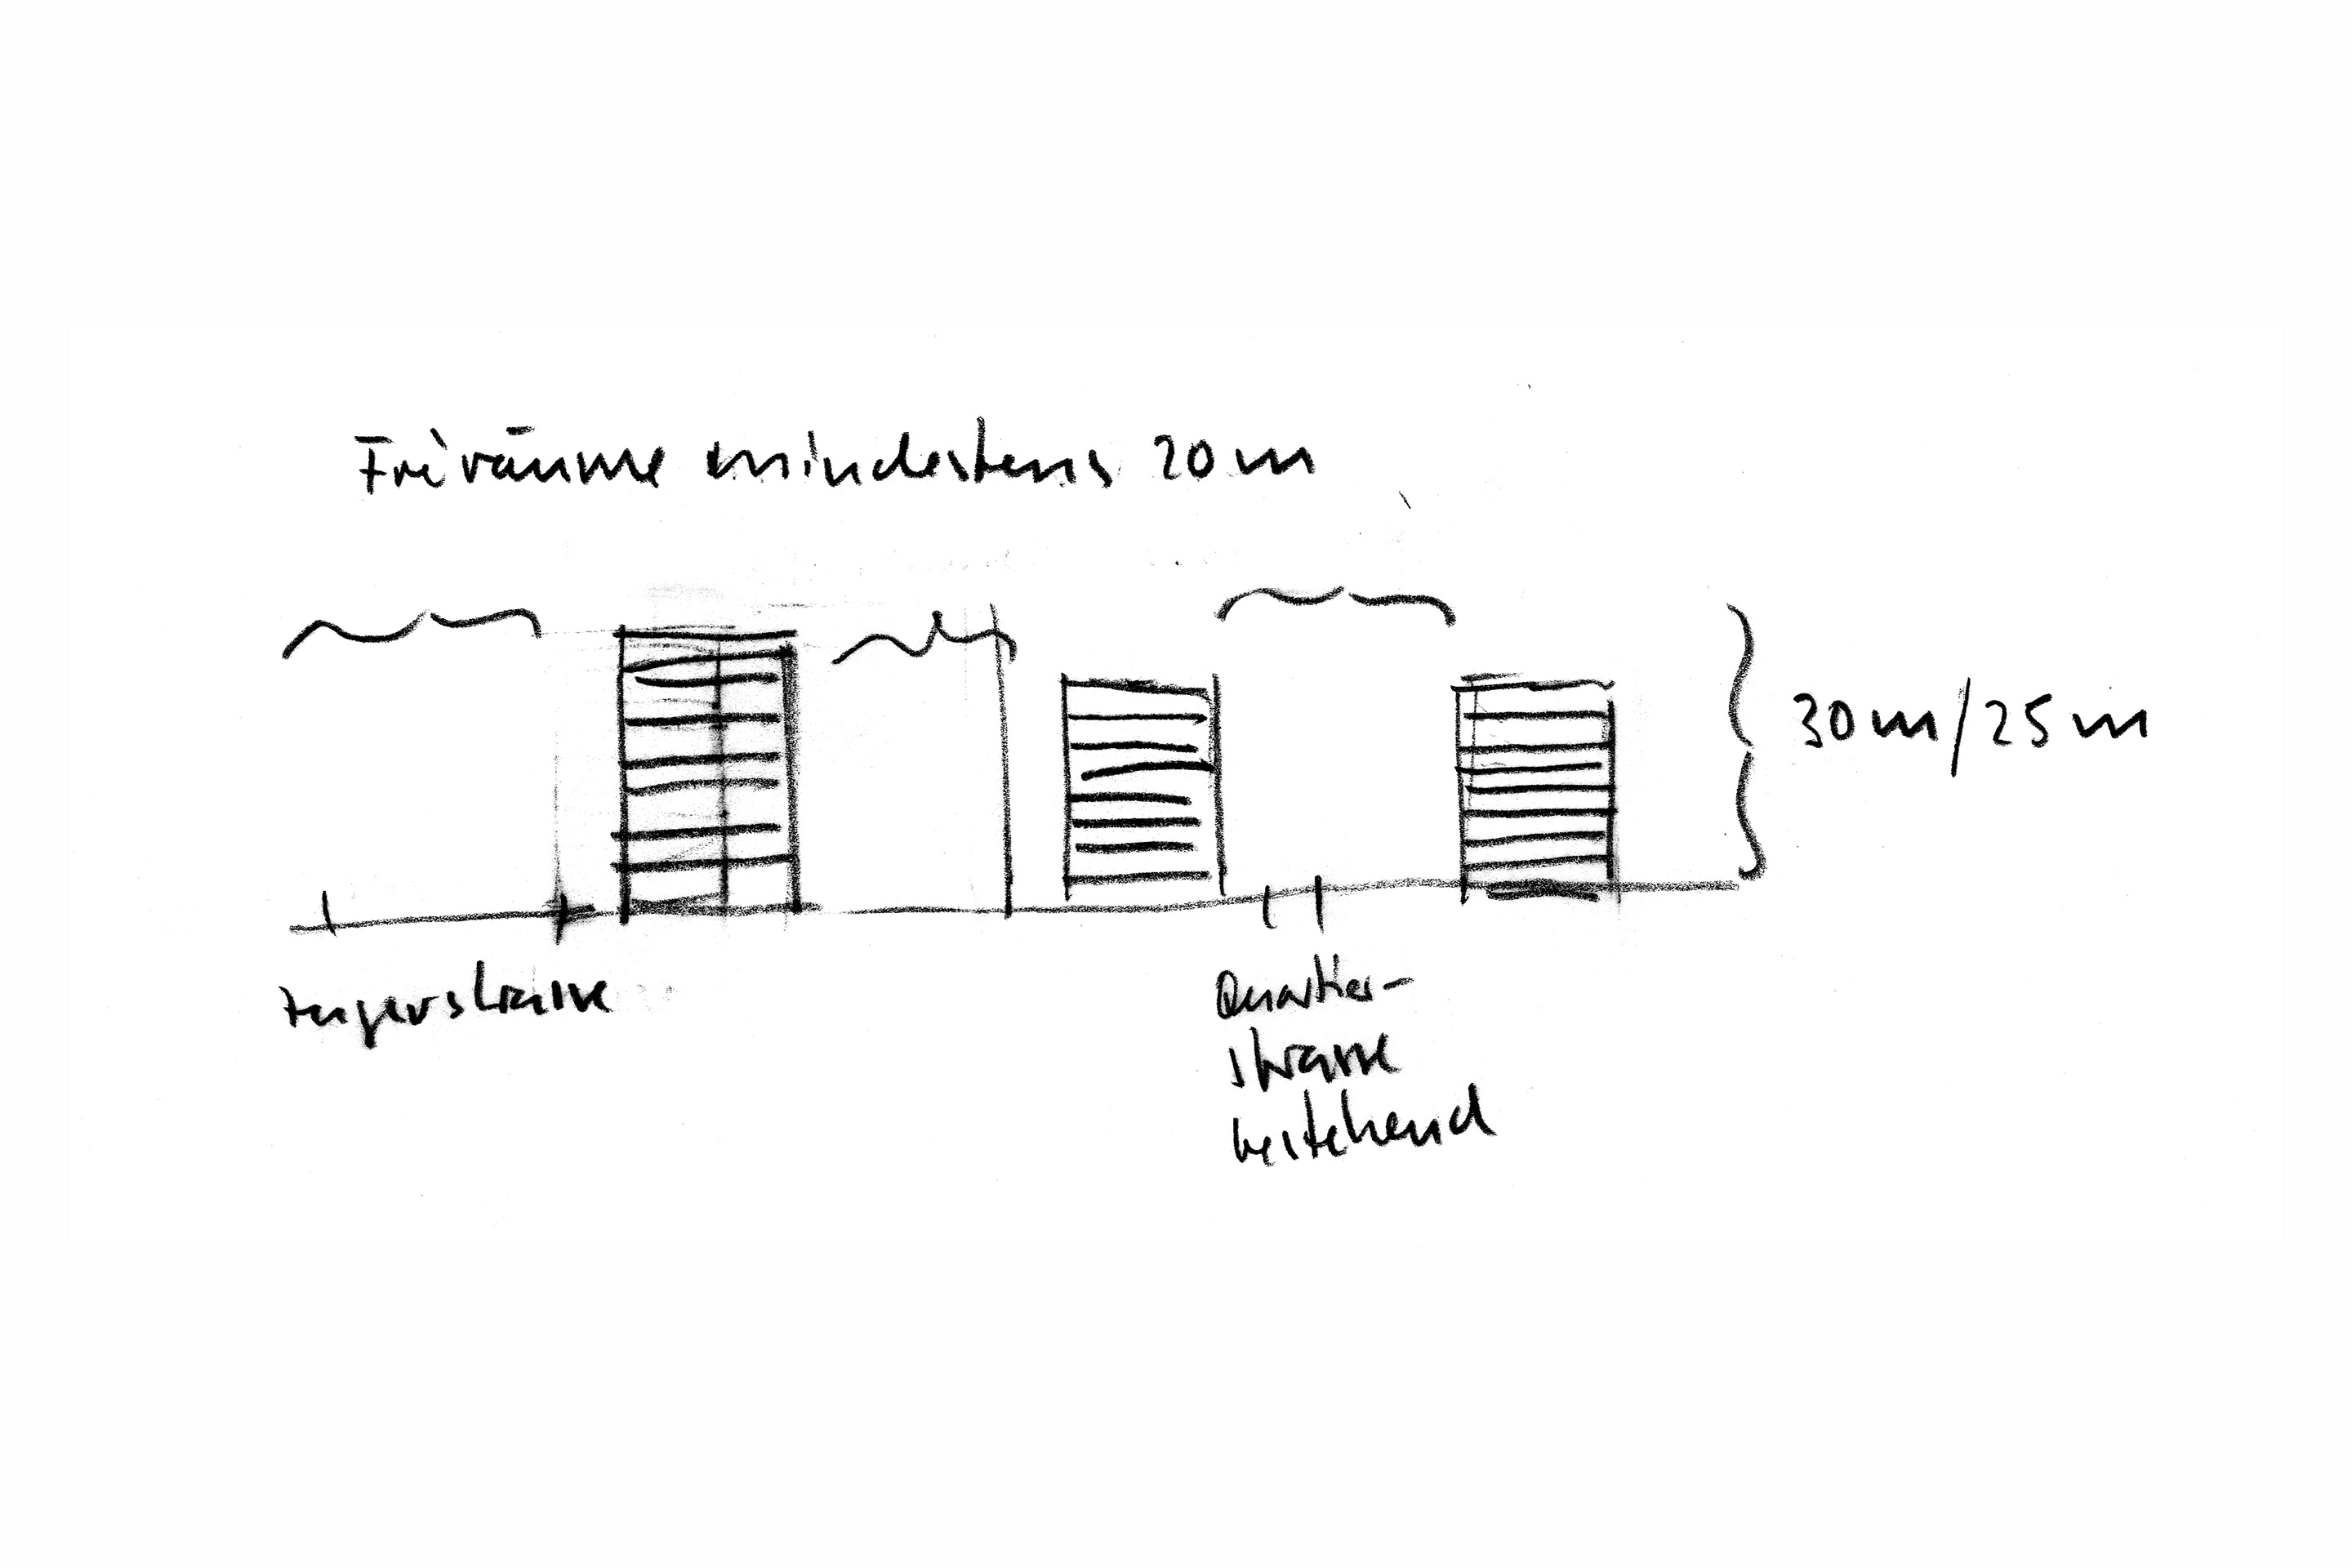 Freiräume mindestens 20 m
30 m / 25 m
Zugerstrasse
Quartier-
strasse
bestehend